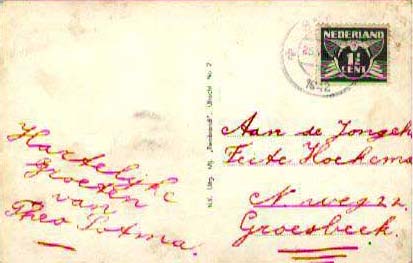 Hartelijke
groeten
van
Theo
N.V. Uitg. Mij. „Rembrandt”, Utrecht No. 2
NEDERLAND
1½
CENT
Aan de Jongeh
Feite Hoekema
N. weg 22.
Groesbeek.